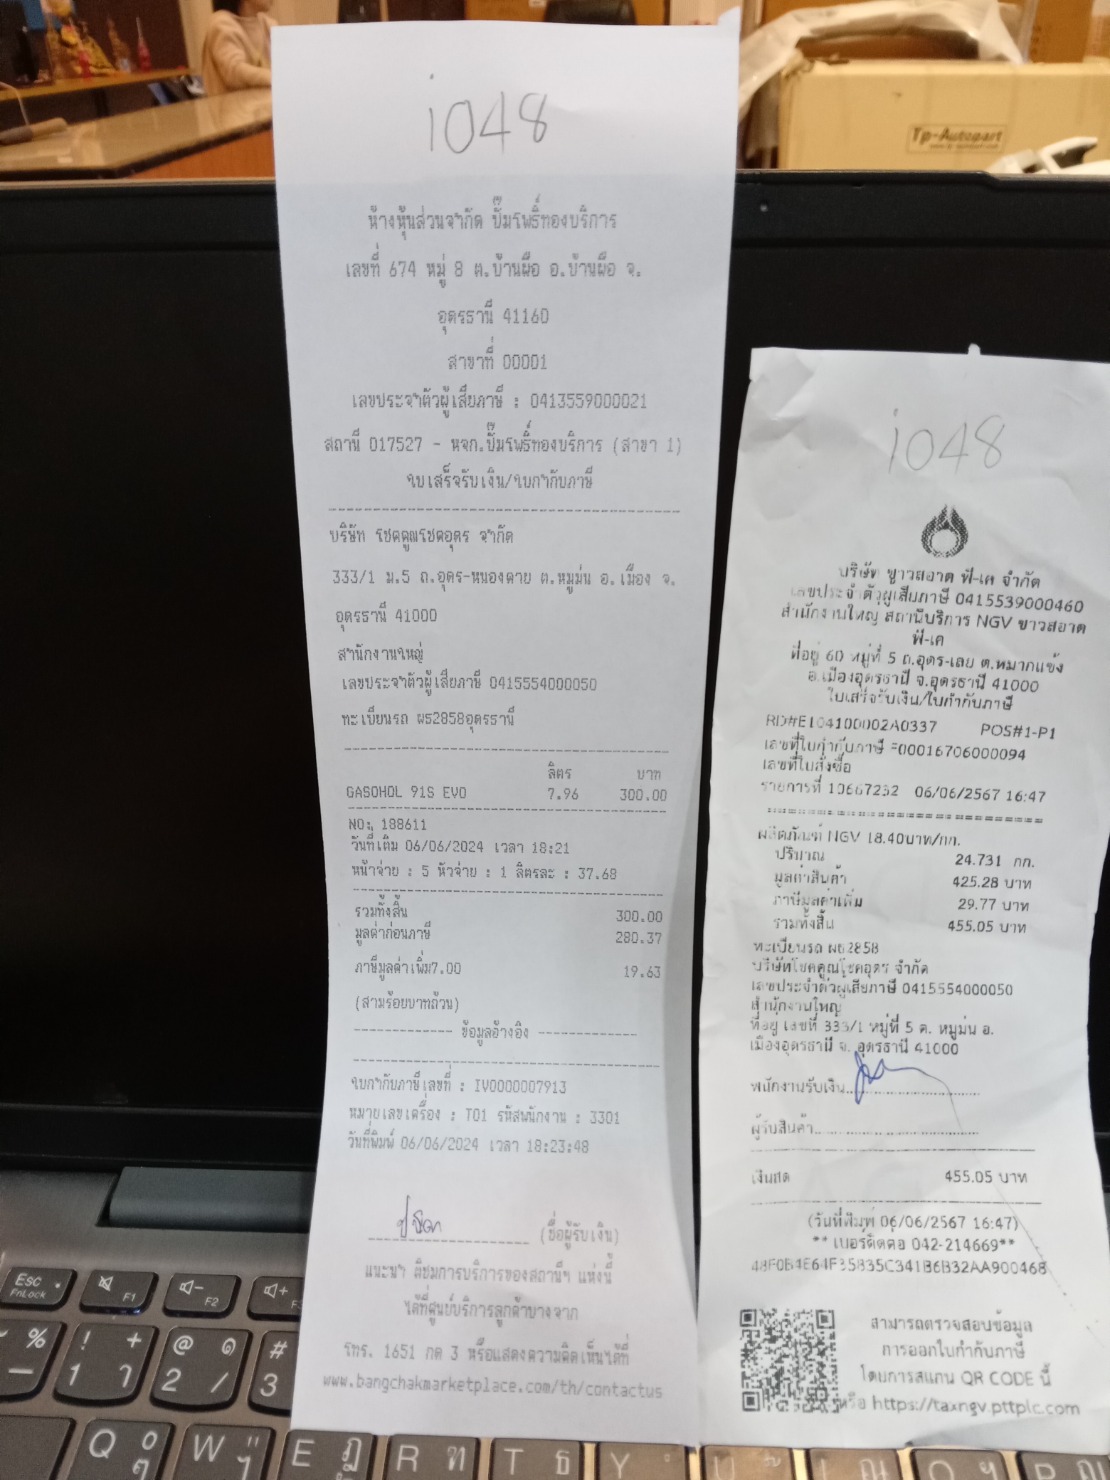 i048
ห้างหุ้นส่วนจำกัด ปั๊มโพธิ์ทองบริการ
เลขที่ 674 หมู่ 8 ต.บ้านผือ อ.บ้านผือ จ.
อุดรธานี 41160
สาขาที่ 00001
เลขประจำตัวผู้เสียภาษี : 0413559000021
สถานี 017527 - หจก.ปั๊มโพธิ์ทองบริการ (สาขา 1)
ใบเสร็จรับเงิน/ใบกำกับภาษี
บริษัท โชคคูณโชคอุดร จำกัด
333/1 ม.5 ถ.อุดร-หนองคาย ต.หมูม่น อ.เมือง จ.
อุดรธานี 41000
สำนักงานใหญ่
เลขประจำตัวผู้เสียภาษี 0415554000050
ทะเบียนรถ ผธ2858อุดรธานี
ลิตร บาท
GASOHOL 91S EVO 7.96 300.00
NO: 188611
วันที่เติม 06/06/2024 เวลา 18:21
หน้าจ่าย : 5 หัวจ่าย : 1 ลิตรละ : 37.68
รวมทั้งสิ้น 300.00
มูลค่าก่อนภาษี 280.37
ภาษีมูลค่าเพิ่ม7.00 19.63
(สามร้อยบาทถ้วน)
------------ ข้อมูลอ้างอิง ------------
ใบกำกับภาษีเลขที่ : IV0000007913
หมายเลขเครื่อง : T01 รหัสพนักงาน : 3301
วันที่พิมพ์ 06/06/2024 เวลา 18:23:48
(ชื่อผู้รับเงิน)
แนะนำ ติชมการบริการของสถานีฯ แห่งนี้
ได้ที่ศูนย์บริการลูกค้าบางจาก
โทร. 1651 กด 3 หรือแสดงความคิดเห็นได้ที่
www.bangchakmarketplace.com/th/contactus
i048
บริษัท ขาวสอาด ฟี-เค จำกัด
เลขประจำตัวผู้เสียภาษี 0415539000460
สำนักงานใหญ่ สถานีบริการ NGV ขาวสอาด
ฟี-เค
ที่อยู่ 60 หมู่ที่ 5 ถ.อุดร-เลย ต.หมากแข้ง
อ.เมืองอุดรธานี จ.อุดรธานี 41000
ใบเสร็จรับเงิน/ใบกำกับภาษี
RD#E104100002A0337 POS#1-P1
เลขที่ใบกำกับภาษี F00016706000094
เลขที่ใบสั่งซื้อ
รายการที่ 10667232 06/06/2567 16:47
ผลิตภัณฑ์ NGV 18.40บาท/กก.
ปริมาณ 24.731 กก.
มูลค่าสินค้า 425.28 บาท
ภาษีมูลค่าเพิ่ม 29.77 บาท
รวมทั้งสิ้น 455.05 บาท
ทะเบียนรถ ผธ2858
บริษัทโชคคูณโชคอุดร จำกัด
เลขประจำตัวผู้เสียภาษี 0415554000050
สำนักงานใหญ่
ที่อยู่ เลขที่ 333/1 หมู่ที่ 5 ต. หมูม่น อ.
เมืองอุดรธานี จ. อุดรธานี 41000
พนักงานรับเงิน
ผู้รับสินค้า
เงินสด 455.05 บาท
(วันที่พิมพ์ 06/06/2567 16:47)
** เบอร์ติดต่อ 042-214669**
48F0B4E64F35835C341B6B32AA900468
สามารถตรวจสอบข้อมูล
การออกใบกำกับภาษี
โดยการสแกน QR CODE นี้
หรือ https://taxngv.pttplc.com
Tp-Autopart
Esc FnLock F1 F2
% ! + 1 @ 2 / # 3
Q W E R T Y